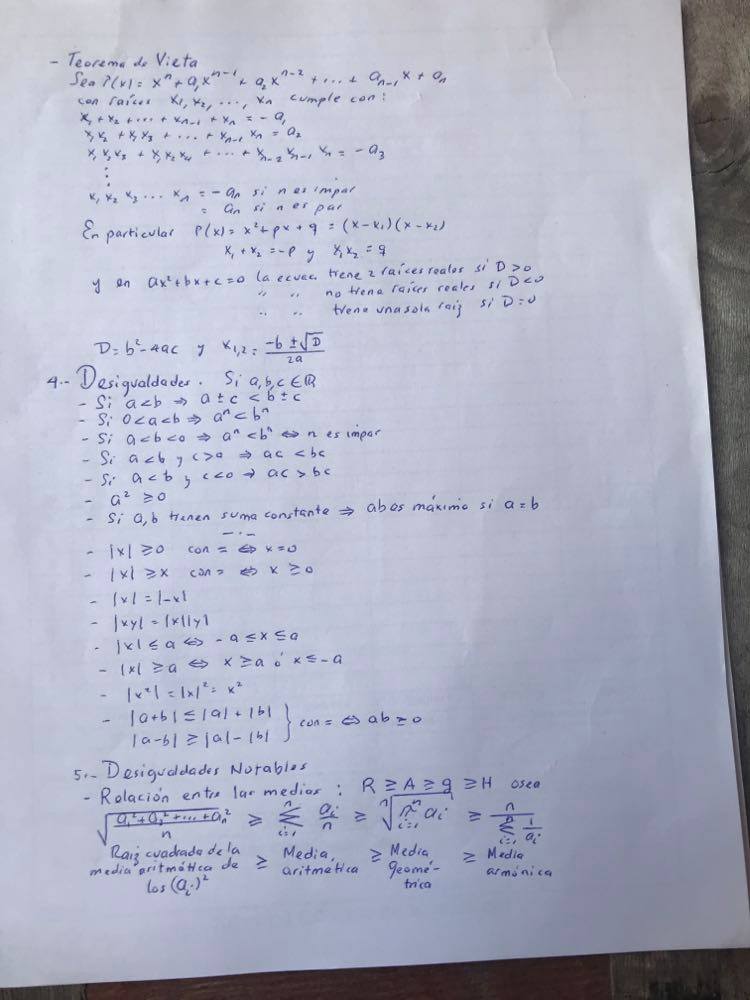 - Teorema de Vieta
Sea P(x) = xⁿ + a₁xⁿ⁻¹ + a₂xⁿ⁻² + ... + aₙ₋₁x + aₙ
con raíces x₁, x₂, ..., xₙ cumple con:
x₁ + x₂ + ... + xₙ₋₁ + xₙ = -a₁
x₁x₂ + x₁x₃ + ... + xₙ₋₁xₙ = a₂
x₁x₂x₃ + x₁x₂x₄ + ... + xₙ₋₂xₙ₋₁xₙ = -a₃
⋮
x₁x₂x₃...xₙ = -aₙ si n es impar
= aₙ si n es par
En particular P(x) = x² + px + q = (x-x₁)(x-x₂)
x₁ + x₂ = -p y x₁x₂ = q
y en ax²+bx+c=0 la ecuac. tiene 2 raíces reales si D>0
" " no tiene raíces reales si D<0
" " tiene una sola raiz si D=0
D = b²-4ac y x₁,₂ = (-b ± √D)/2a
4.- Desigualdades. Si a,b,c ∈ ℝ
- Si a<b ⇒ a±c < b±c
- Si 0<a<b ⇒ aⁿ<bⁿ
- Si a<b<0 ⇒ aⁿ<bⁿ ⇔ n es impar
- Si a<b y c>0 ⇒ ac<bc
- Si a<b y c<0 ⇒ ac>bc
- a² ≥0
- Si a,b tienen suma constante ⇒ ab es máximo si a=b
—.—
- |x| ≥0 con = ⇔ x=0
- |x| ≥x con = ⇔ x ≥0
- |x| = |-x|
- |xy| = |x||y|
- |x| ≤ a ⇔ -a ≤ x ≤ a
- |x| ≥ a ⇔ x ≥ a ó x ≤ -a
- |x²| = |x|² = x²
- |a+b| ≤ |a| + |b|
|a-b| ≥ |a| - |b| } con = ⇔ ab ≥ 0
5.- Desigualdades Notables
- Relación entre las medias: R ≥ A ≥ g ≥ H osea
√((a₁²+a₂²+...+aₙ²)/n) ≥ ∑ᵢ₌₁ⁿ aᵢ/n ≥ ⁿ√(∏ᵢ₌₁ⁿ aᵢ) ≥ n/(∑ᵢ₌₁ⁿ 1/aᵢ)
Raiz cuadrada de la media aritmética de los (aᵢ)² ≥ Media aritmética ≥ Media geométrica ≥ Media armónica